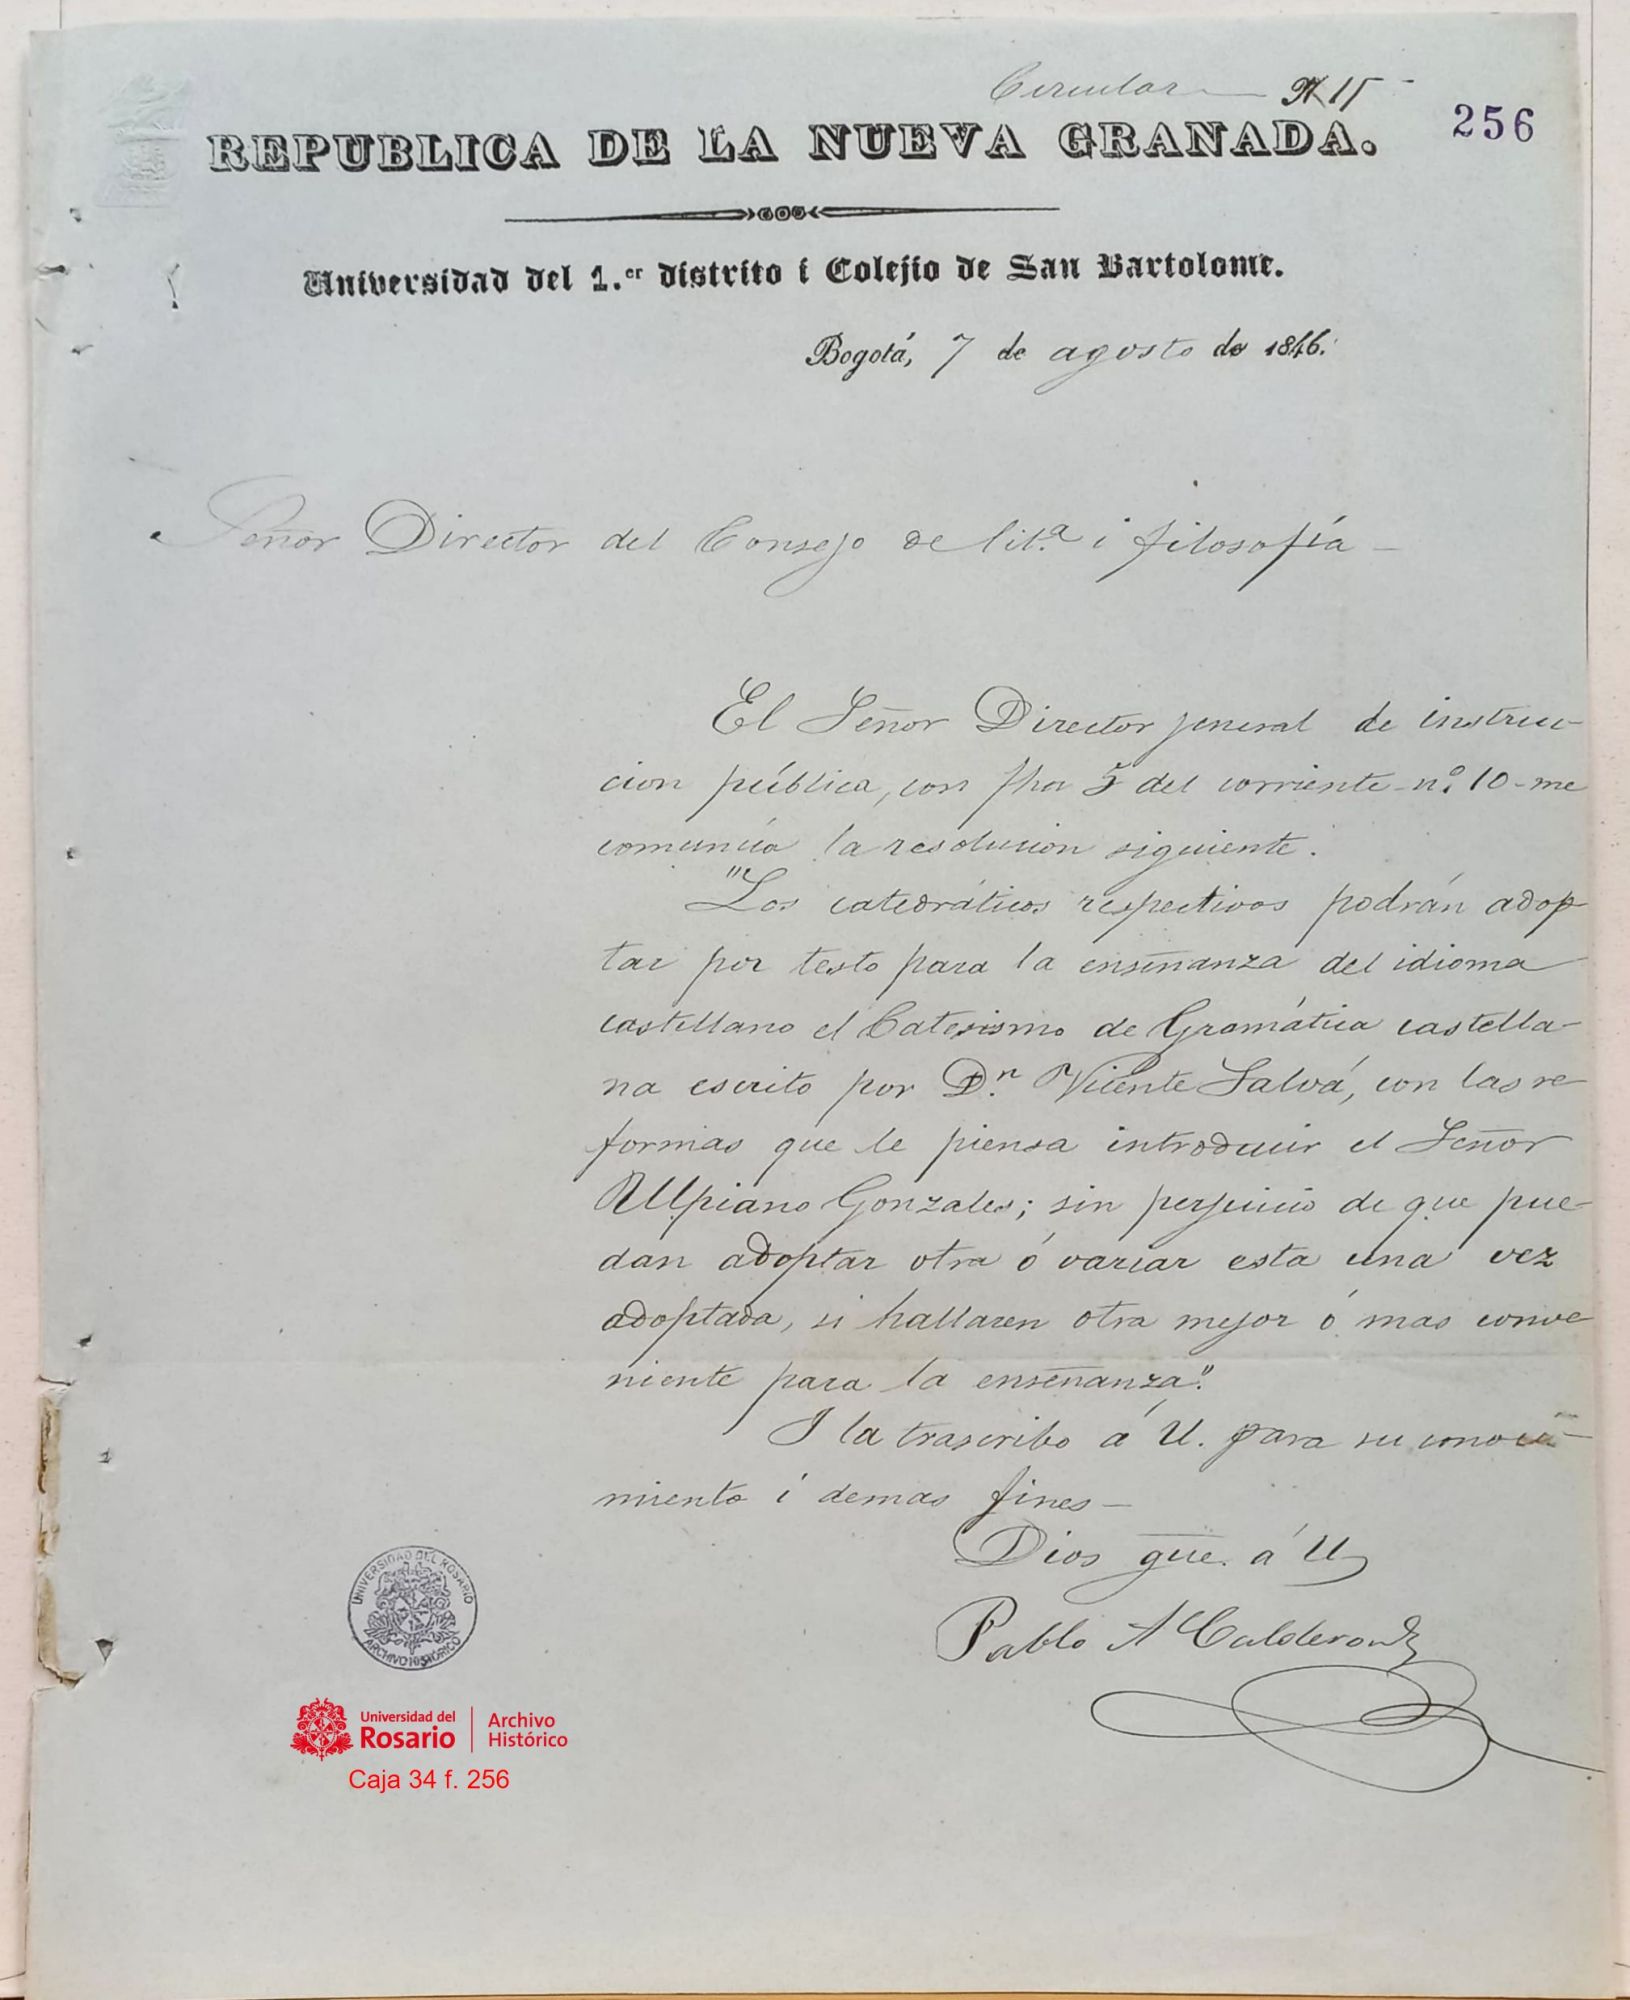 Circular N 15
256
REPUBLICA DE LA NUEVA GRANADA.
Universidad del 1.er distrito i Colejio de San Bartolome.
Bogotá, 7 de agosto de 1846.
Señor Director del Consejo de lit.a i filosofía —
El Señor Director jeneral de instruc-
cion pública, con fha 5 del corriente n.o 10 - me
comunica la resolucion siguiente.
"Los catedráticos respectivos podrán adop-
tar por testo para la enseñanza del idioma
castellano el Catesismo de Gramática castella-
na escrito por D.n Vicente Salvá, con las re-
formas que le piensa introducir el Señor
Ulpiano Gonzales; sin perjuicio de que pue-
dan adoptar otra ó variar esta una vez
adoptada, si hallaren otra mejor ó mas conve-
niente para la enseñanza."
I la trascribo á U. para su conoci-
miento i demas fines —
Dios gue. á U
Pablo A Calderon
UNIVERSIDAD DEL ROSARIO
ARCHIVO HISTÓRICO
Universidad del Rosario
Archivo Histórico
Caja 34 f. 256